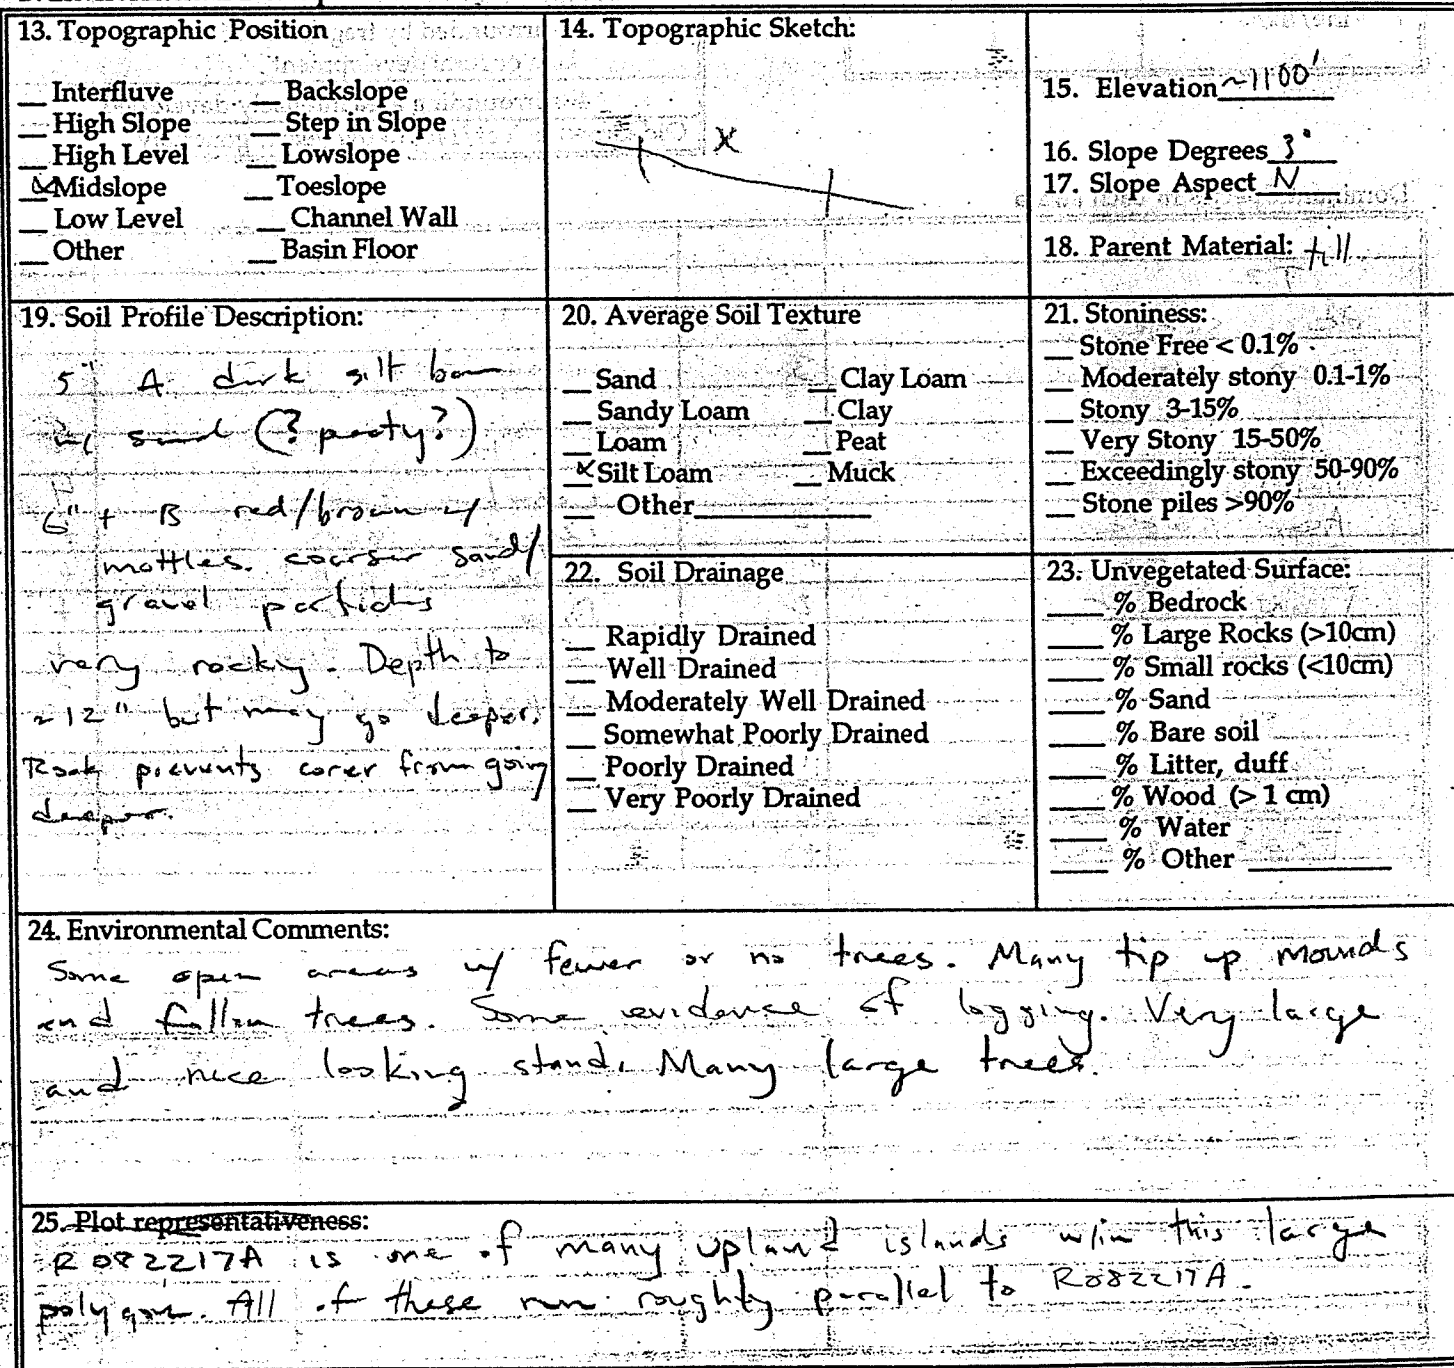 13. Topographic Position
__ Interfluve __ Backslope
__ High Slope __ Step in Slope
__ High Level __ Lowslope
x Midslope __ Toeslope
__ Low Level __ Channel Wall
__ Other __ Basin Floor
14. Topographic Sketch:
X
15. Elevation ~1100'
16. Slope Degrees 3°
17. Slope Aspect N
18. Parent Material: till
19. Soil Profile Description:
5" A dark silt loam
w/ sand (? peaty?)
6"+ B red/brown w/
mottles. coarser sand/
gravel particles
very rocky. Depth to
~12" but may go deeper.
Rock prevents corer from going
deeper.
20. Average Soil Texture
__ Sand __ Clay Loam
__ Sandy Loam __ Clay
__ Loam __ Peat
x Silt Loam __ Muck
__ Other
21. Stoniness:
__ Stone Free < 0.1%
__ Moderately stony 0.1-1%
__ Stony 3-15%
__ Very Stony 15-50%
__ Exceedingly stony 50-90%
__ Stone piles >90%
22. Soil Drainage
__ Rapidly Drained
__ Well Drained
__ Moderately Well Drained
__ Somewhat Poorly Drained
__ Poorly Drained
__ Very Poorly Drained
23. Unvegetated Surface:
___ % Bedrock
___ % Large Rocks (>10cm)
___ % Small rocks (<10cm)
___ % Sand
___ % Bare soil
___ % Litter, duff
___ % Wood (> 1 cm)
___ % Water
___ % Other
24. Environmental Comments:
Some open areas w/ fewer or no trees. Many tip up mounds
and fallen trees. Some evidence of logging. Very large
and nice looking stand. Many large trees.
25. Plot representativeness:
R082217A is one of many upland islands w/in this large
polygon. All of these run roughly parallel to R082217A.